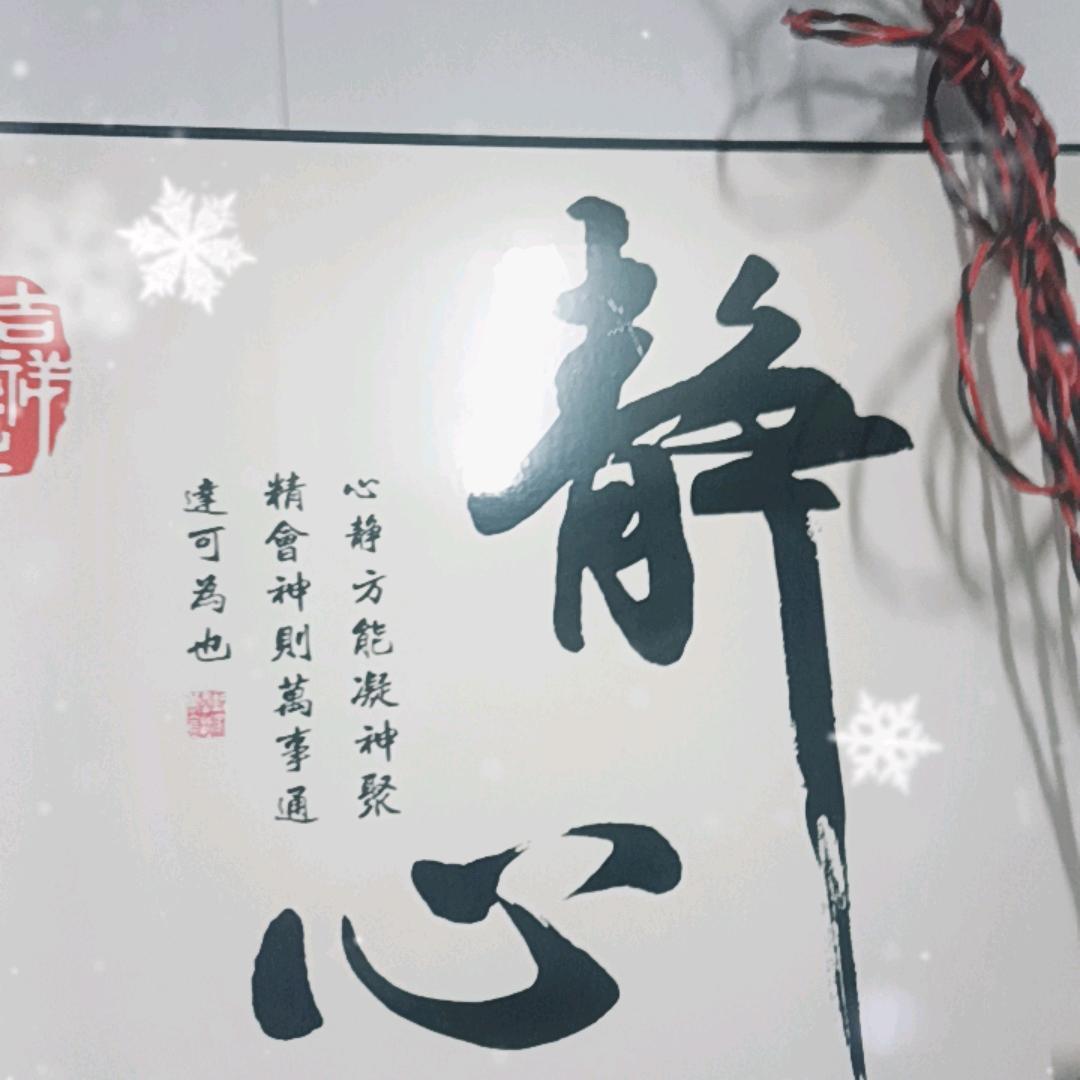 静心
心静方能凝神聚
精會神則萬事通
達可為也
吉祥